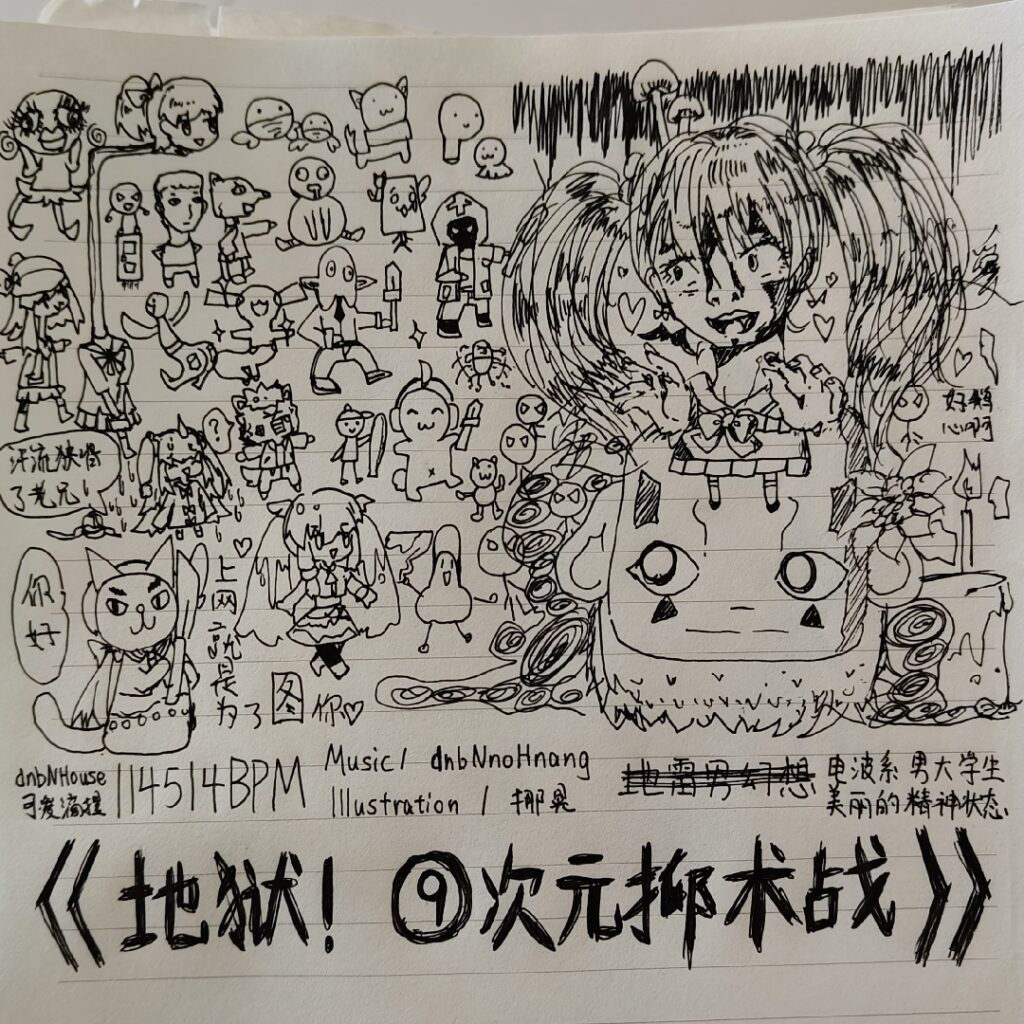 爱
好鹅
心啊
汗流浃背
了老兄！
?
你
好
上
网
就
是
为了图你♡
dnbNHouse
可爱滴捏
114514BPM
Music / dnbNnoHnang
Illustration / 挪晃
地雷男幻想
电波系男大学生
美丽的精神状态
《地狱！⑨次元抑术战》